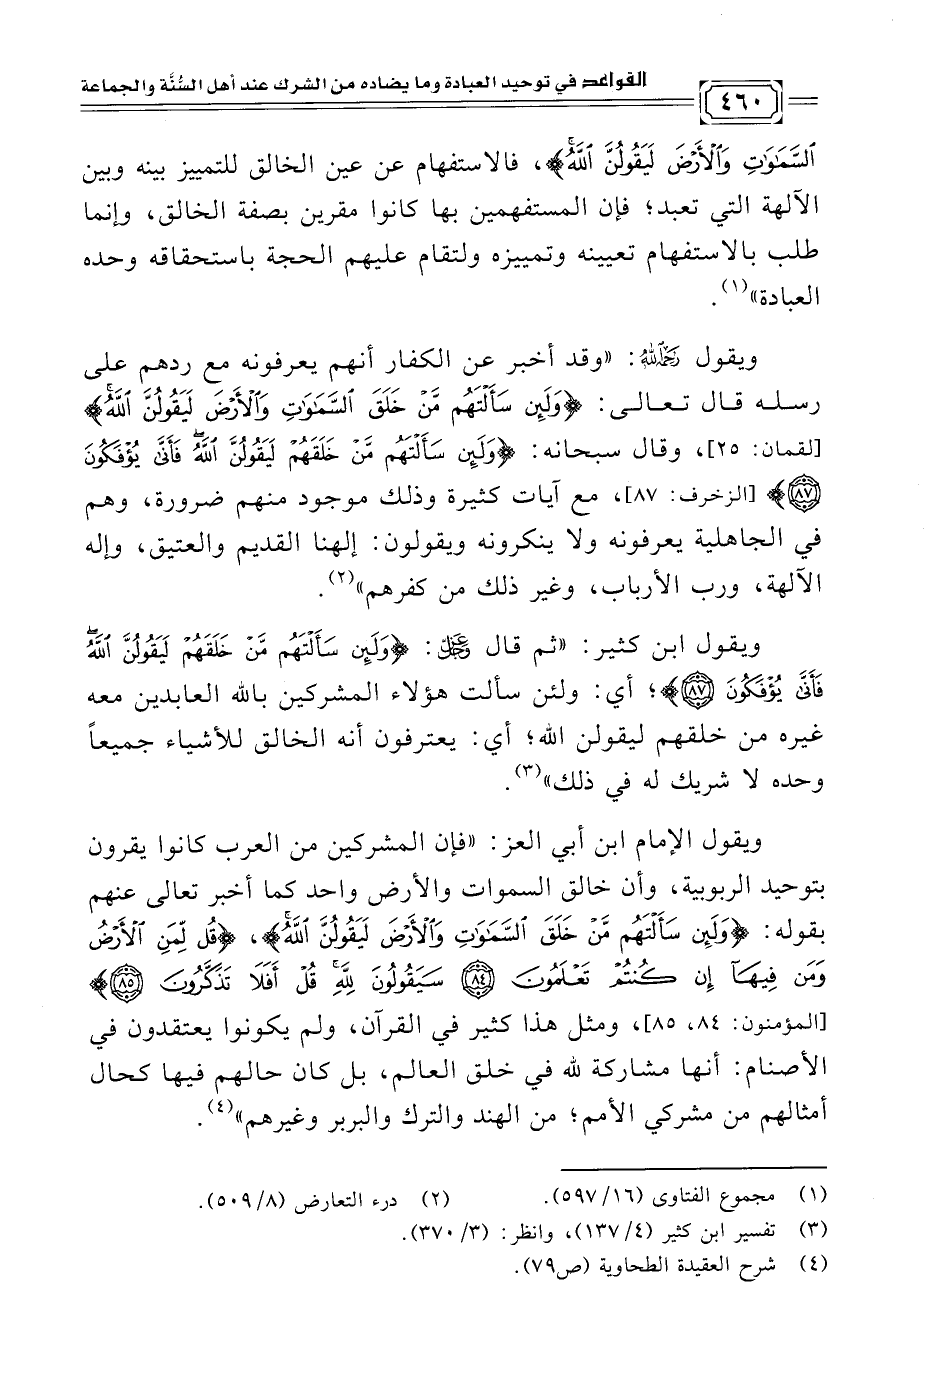 القواعد في توحيد العبادة وما يضاده من الشرك عند أهل السُّنَّة والجماعة
٤٦٠
ٱلسَّمَٰوَٰتِ وَٱلْأَرْضَ لَيَقُولُنَّ ٱللَّهُ ۚ﴾، فالاستفهام عن عين الخالق للتمييز بينه وبين
الآلهة التي تعبد؛ فإن المستفهمين بها كانوا مقرين بصفة الخالق، وإنما
طلب بالاستفهام تعيينه وتمييزه ولتقام عليهم الحجة باستحقاقه وحده
العبادة»(١).
ويقول رَحِمَهُ اللهُ: «وقد أخبر عن الكفار أنهم يعرفونه مع ردهم على
رسله قال تعالى: ﴿وَلَئِن سَأَلْتَهُم مَّنْ خَلَقَ ٱلسَّمَٰوَٰتِ وَٱلْأَرْضَ لَيَقُولُنَّ ٱللَّهُ ۚ﴾
[لقمان: ٢٥]، وقال سبحانه: ﴿وَلَئِن سَأَلْتَهُم مَّنْ خَلَقَهُمْ لَيَقُولُنَّ ٱللَّهُ ۖ فَأَنَّىٰ يُؤْفَكُونَ
﴿٨٧﴾﴾ [الزخرف: ٨٧]، مع آيات كثيرة وذلك موجود منهم ضرورة، وهم
في الجاهلية يعرفونه ولا ينكرونه ويقولون: إلهنا القديم والعتيق، وإله
الآلهة، ورب الأرباب، وغير ذلك من كفرهم»(٢).
ويقول ابن كثير: «ثم قال عَزَّوَجَلَّ: ﴿وَلَئِن سَأَلْتَهُم مَّنْ خَلَقَهُمْ لَيَقُولُنَّ ٱللَّهُ ۖ
فَأَنَّىٰ يُؤْفَكُونَ ﴿٨٧﴾﴾؛ أي: ولئن سألت هؤلاء المشركين بالله العابدين معه
غيره من خلقهم ليقولن الله؛ أي: يعترفون أنه الخالق للأشياء جميعاً
وحده لا شريك له في ذلك»(٣).
ويقول الإمام ابن أبي العز: «فإن المشركين من العرب كانوا يقرون
بتوحيد الربوبية، وأن خالق السموات والأرض واحد كما أخبر تعالى عنهم
بقوله: ﴿وَلَئِن سَأَلْتَهُم مَّنْ خَلَقَ ٱلسَّمَٰوَٰتِ وَٱلْأَرْضَ لَيَقُولُنَّ ٱللَّهُ ۚ﴾، ﴿قُل لِّمَنِ ٱلْأَرْضُ
وَمَن فِيهَآ إِن كُنتُمْ تَعْلَمُونَ ﴿٨٤﴾ سَيَقُولُونَ لِلَّهِ ۚ قُلْ أَفَلَا تَذَكَّرُونَ ﴿٨٥﴾﴾
[المؤمنون: ٨٤، ٨٥]، ومثل هذا كثير في القرآن، ولم يكونوا يعتقدون في
الأصنام: أنها مشاركة لله في خلق العالم، بل كان حالهم فيها كحال
أمثالهم من مشركي الأمم؛ من الهند والترك والبربر وغيرهم»(٤).
(١) مجموع الفتاوى (١٦/٥٩٧). (٢) درء التعارض (٨/٥٠٩).
(٣) تفسير ابن كثير (٤/١٣٧)، وانظر: (٣/٣٧٠).
(٤) شرح العقيدة الطحاوية (ص٧٩).